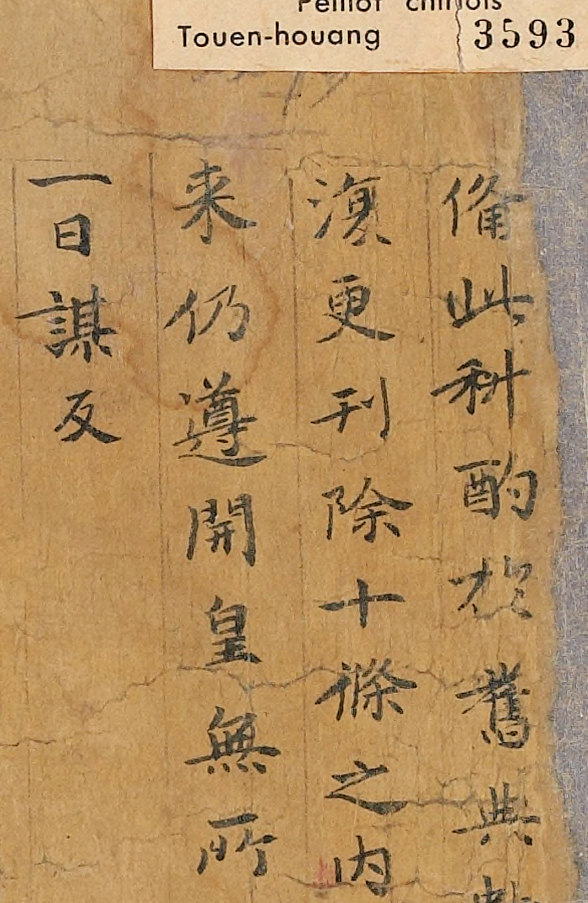 Pelliot chinois
Touen-houang 3593
俻此科酌於舊典
復更刊除十條之內
来仍遵開皇無所
一曰謀反